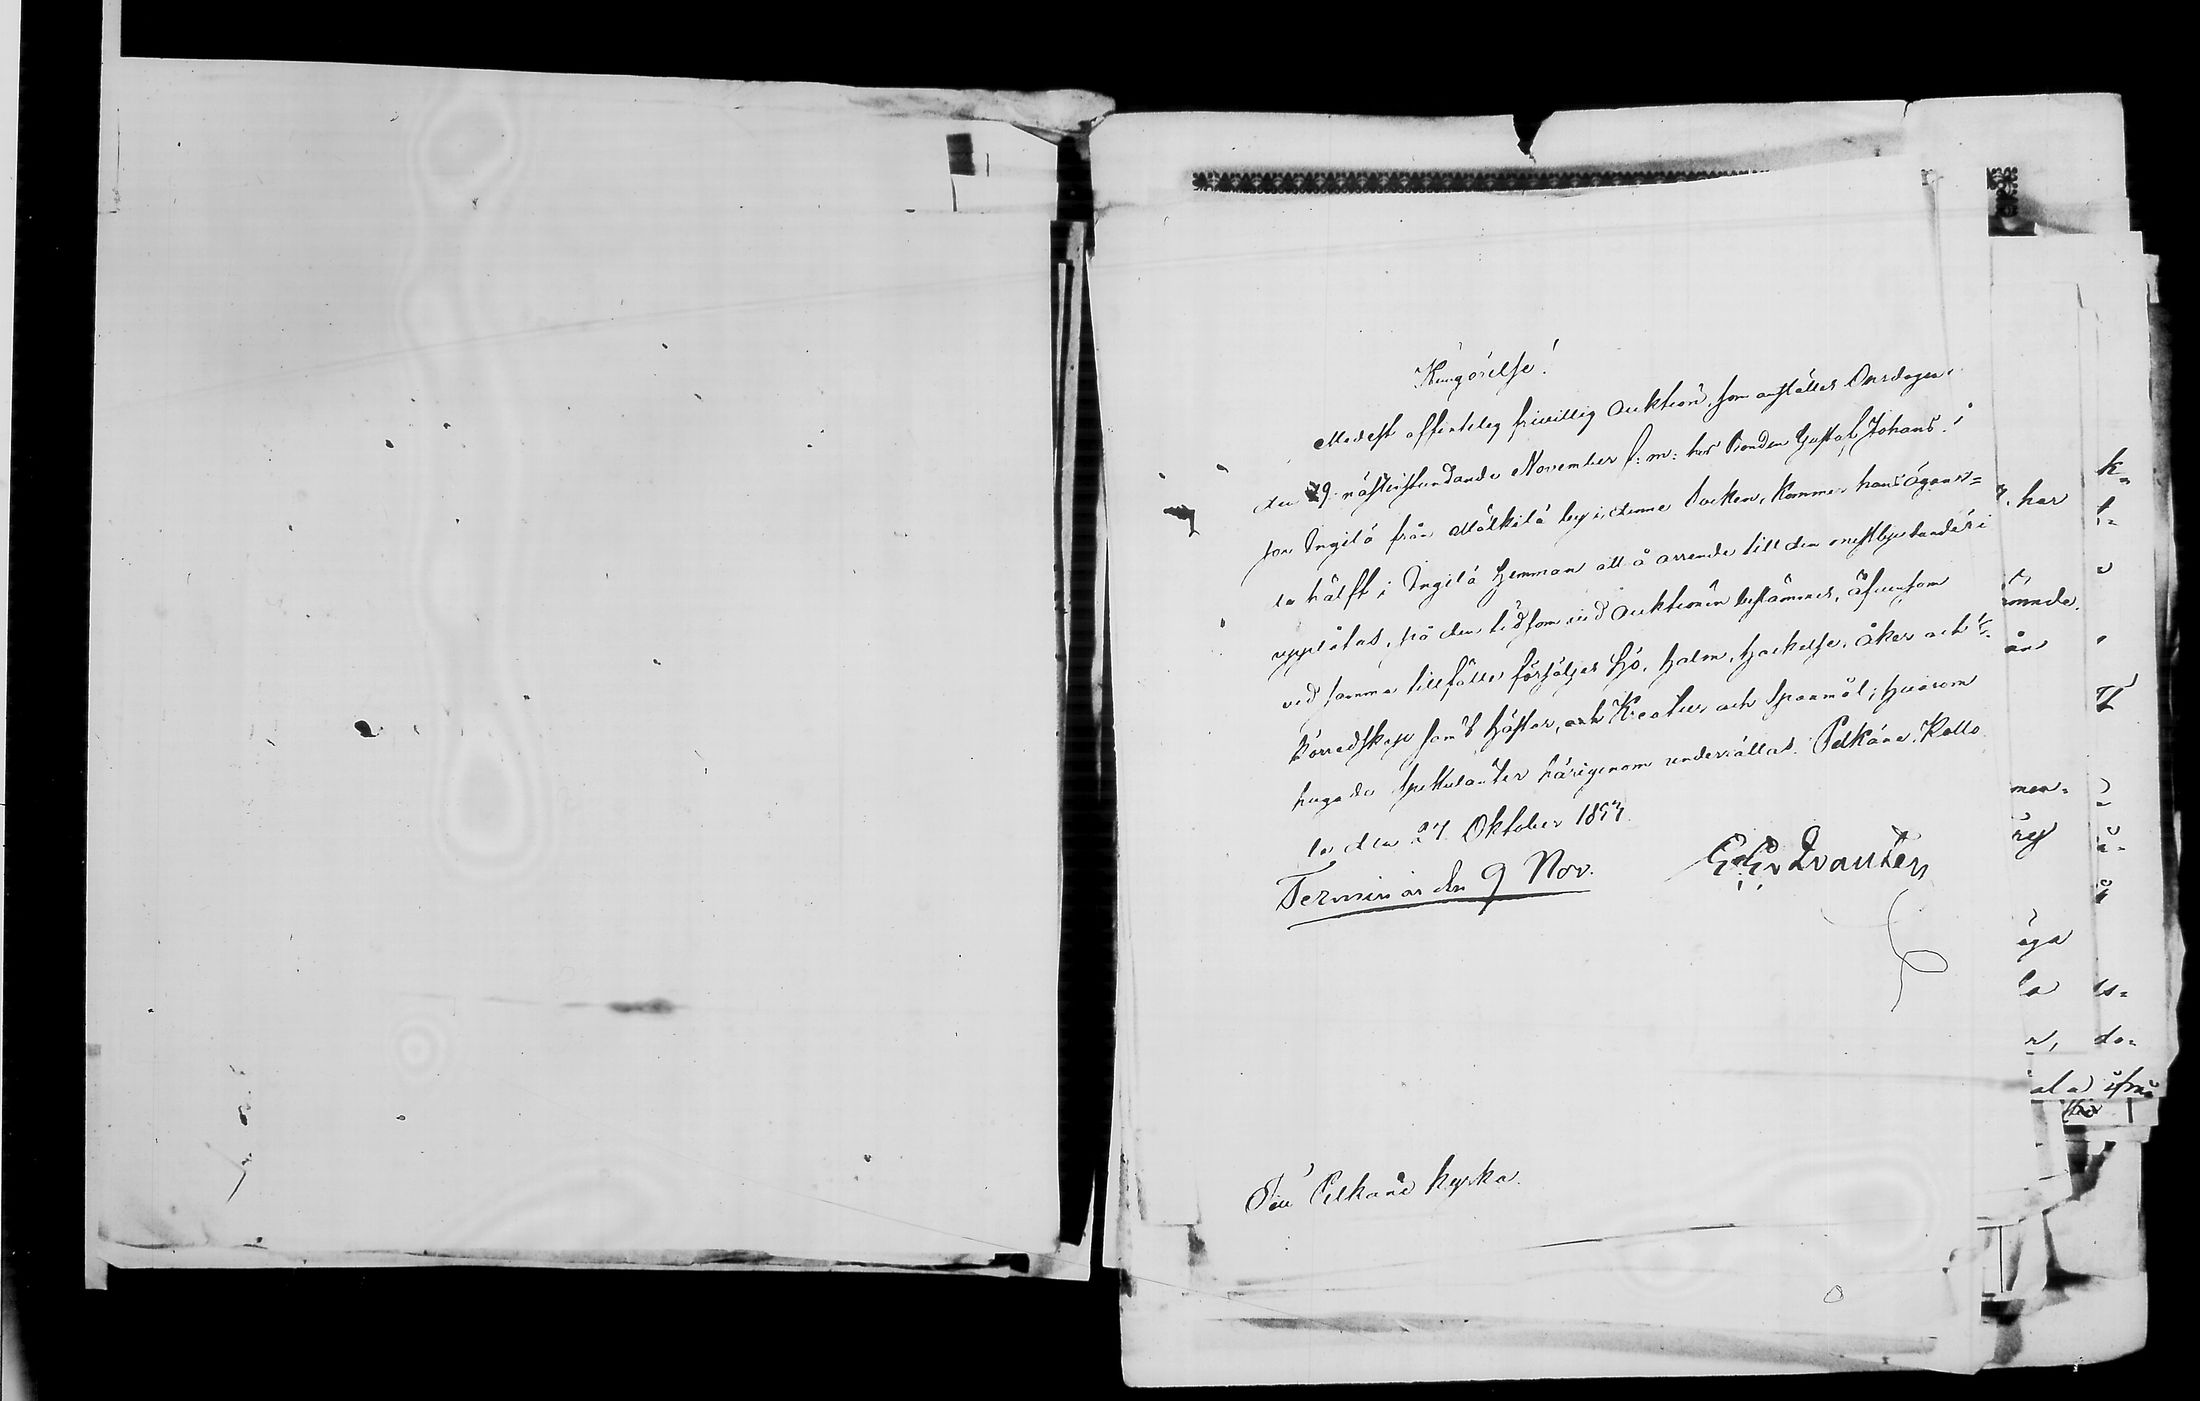 Kungörelse!
Medelst offentelig frivillig Auktion, som anställes Onsdagen
den 9 nästinstundande November f: m: hos Bonden Gustaf Johans-
son Ingilä från Mälkilä by i denne Socken, kommer hans ägan-
de hälft i Ingilä Hemman att å arrende till den mestbjudande
upplåtas, på den tid som vid Auktionen bestämmes, äfvensom
vid samma tillfälle försäljes Hö, Halm, Hackelse, åker och
Körredskap samt Hästar, och Kreatur och Spanmål; hvarom
hugade Spekulanter härigenom underrättas. Pelkäne, Kollo
la den 27 Oktober 1877.
Termin är den 9 Nov.
Från Pelkäne kyrka.
har
k=
än
men=
äga
la
r,
da=